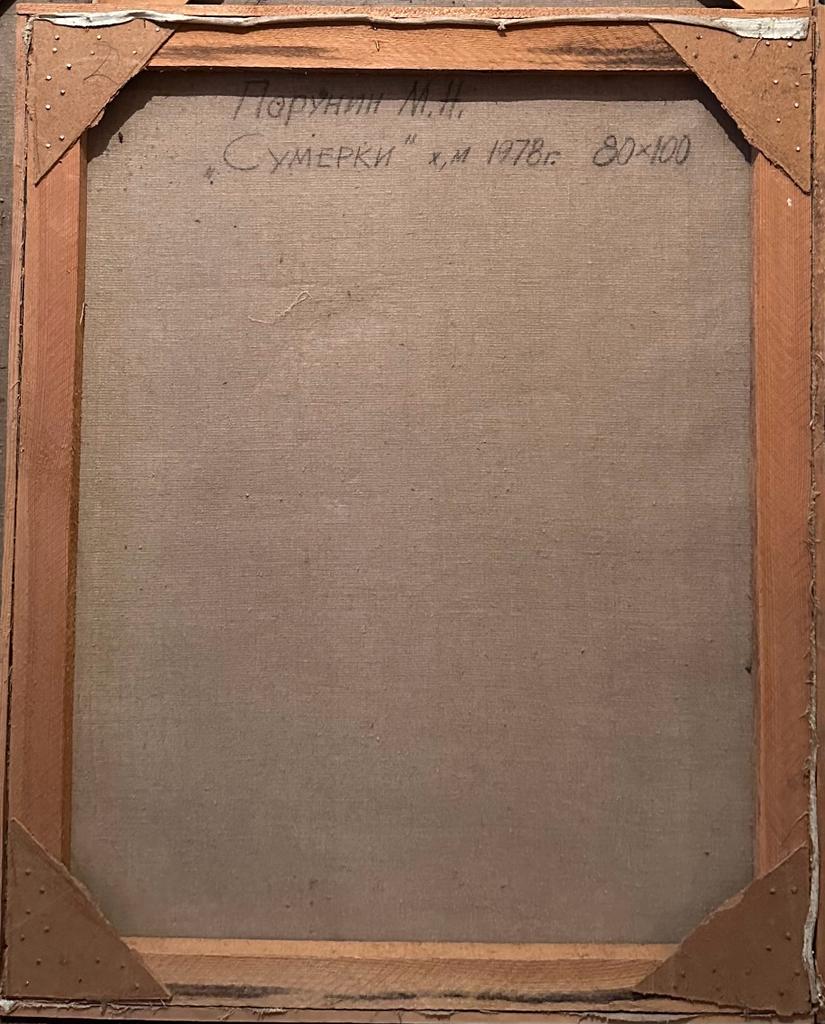 Порунин М.Н.
„Сумерки" х,м 1978г. 80×100
2